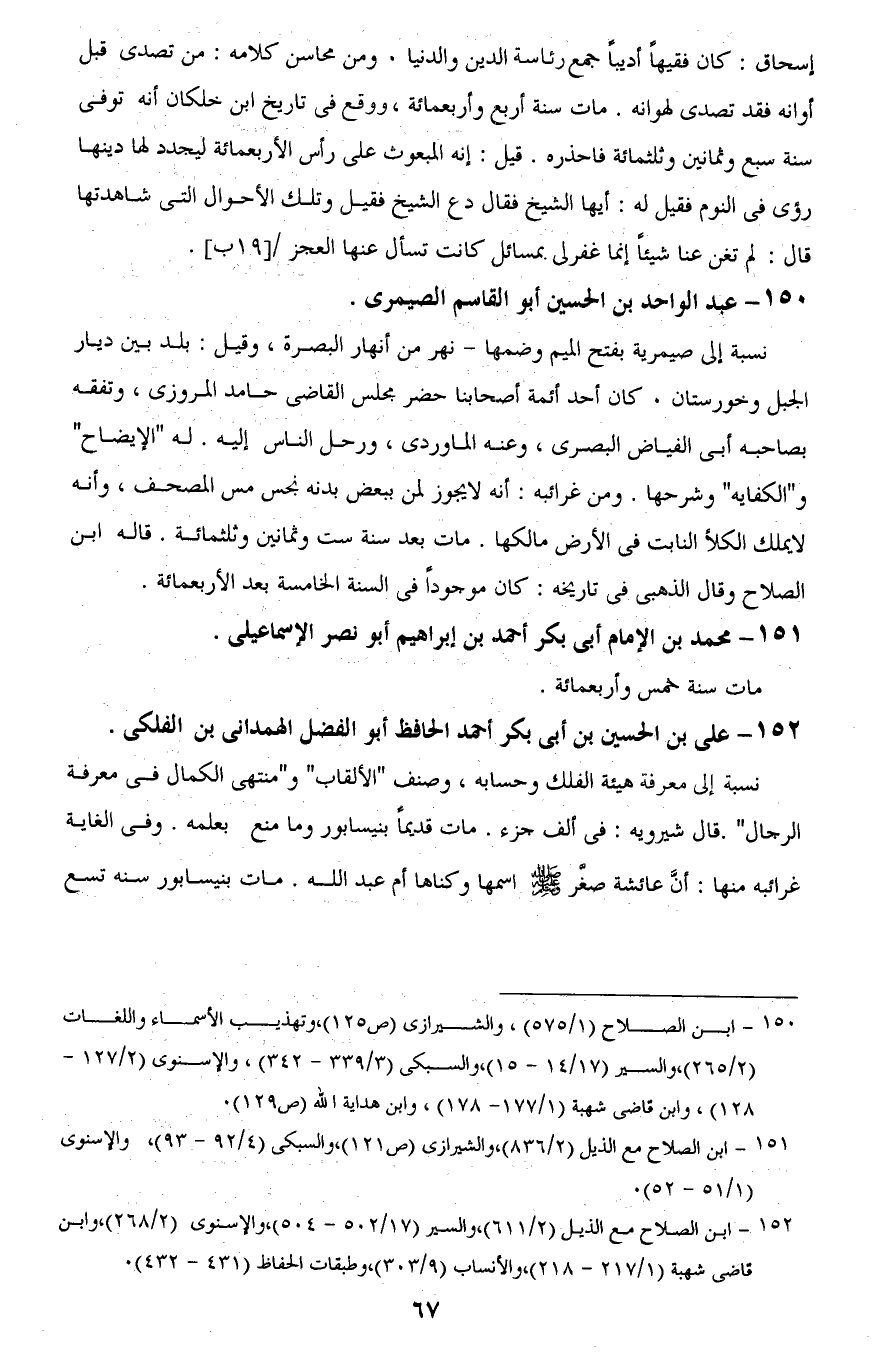 إسحاق : كان فقيهاً أديباً جمع رئاسة الدين والدنيا . ومن محاسن كلامه : من تصدى قبل
أوانه فقد تصدى لهوانه . مات سنة أربع وأربعمائة ، ووقع فى تاريخ ابن خلكان أنه توفى
سنة سبع وثمانين وثلثمائة فاحذره . قيل : إنه المبعوث على رأس الأربعمائة ليجدد لها دينها
رؤى فى النوم فقيل له : أيها الشيخ فقال دع الشيخ فقيل وتلك الأحوال التى شاهدتها
قال : لم تغن عنا شيئاً إنما غفرلى بمسائل كانت تسأل عنها العجز /[١٩ب] .
١٥٠- عبد الواحد بن الحسين أبو القاسم الصيمرى .
نسبة إلى صيمرية بفتح الميم وضمها - نهر من أنهار البصرة ، وقيل : بلد بين ديار
الجبل وخورستان . كان أحد أئمة أصحابنا حضر مجلس القاضى حامد المروزى ، وتفقه
بصاحبه أبى الفياض البصرى ، وعنه الماوردى ، ورحل الناس إليه . له "الإيضاح"
و"الكفايه" وشرحها . ومن غرائبه : أنه لايجوز لمن ببعض بدنه نجس مس المصحف ، وأنه
لايملك الكلأ النابت فى الأرض مالكها . مات بعد سنة ست وثمانين وثلثمائة . قاله ابن
الصلاح وقال الذهبى فى تاريخه : كان موجوداً فى السنة الخامسة بعد الأربعمائة .
١٥١- محمد بن الإمام أبى بكر أحمد بن إبراهيم أبو نصر الإسماعيلى .
مات سنة خمس وأربعمائة .
١٥٢- على بن الحسين بن أبى بكر أحمد الحافظ أبو الفضل الهمدانى بن الفلكى .
نسبة إلى معرفة هيئة الفلك وحسابه ، وصنف "الألقاب" و"منتهى الكمال فى معرفة
الرجال" .قال شيرويه : فى ألف جزء . مات قديماً بنيسابور وما منع بعلمه . وفى الغاية
غرائبه منها : أنَّ عائشة صغَّر ﷺ اسمها وكناها أم عبد الله . مات بنيسابور سنه تسع
١٥٠ - ابن الصلاح (٥٧٥/١) ، والشيرازى (ص١٢٥)،وتهذيب الأسماء واللغات
(٢٦٥/٢)،والسير (١٤/١٧ - ١٥)،والسبكى (٣٣٩/٣ - ٣٤٢) ، والإسنوى (١٢٧/٢ -
١٢٨) ، وابن قاضى شهبة (١٧٧/١- ١٧٨) ، وابن هداية الله (ص١٢٩).
١٥١ - ابن الصلاح مع الذيل (٨٣٦/٢)،والشيرازى (ص١٢١)،والسبكى (٩٢/٤ - ٩٣)، والإسنوى
(٥١/١ - ٥٢).
١٥٢ - ابن الصلاح مع الذيل (٦١١/٢)،والسير (٥٠٢/١٧ - ٥٠٤)،والإسنوى (٢٦٨/٢)،وابن
قاضى شهبة (٢١٧/١ - ٢١٨)،والأنساب (٣٠٣/٩)،وطبقات الحفاظ (٤٣١ - ٤٣٢).
٦٧